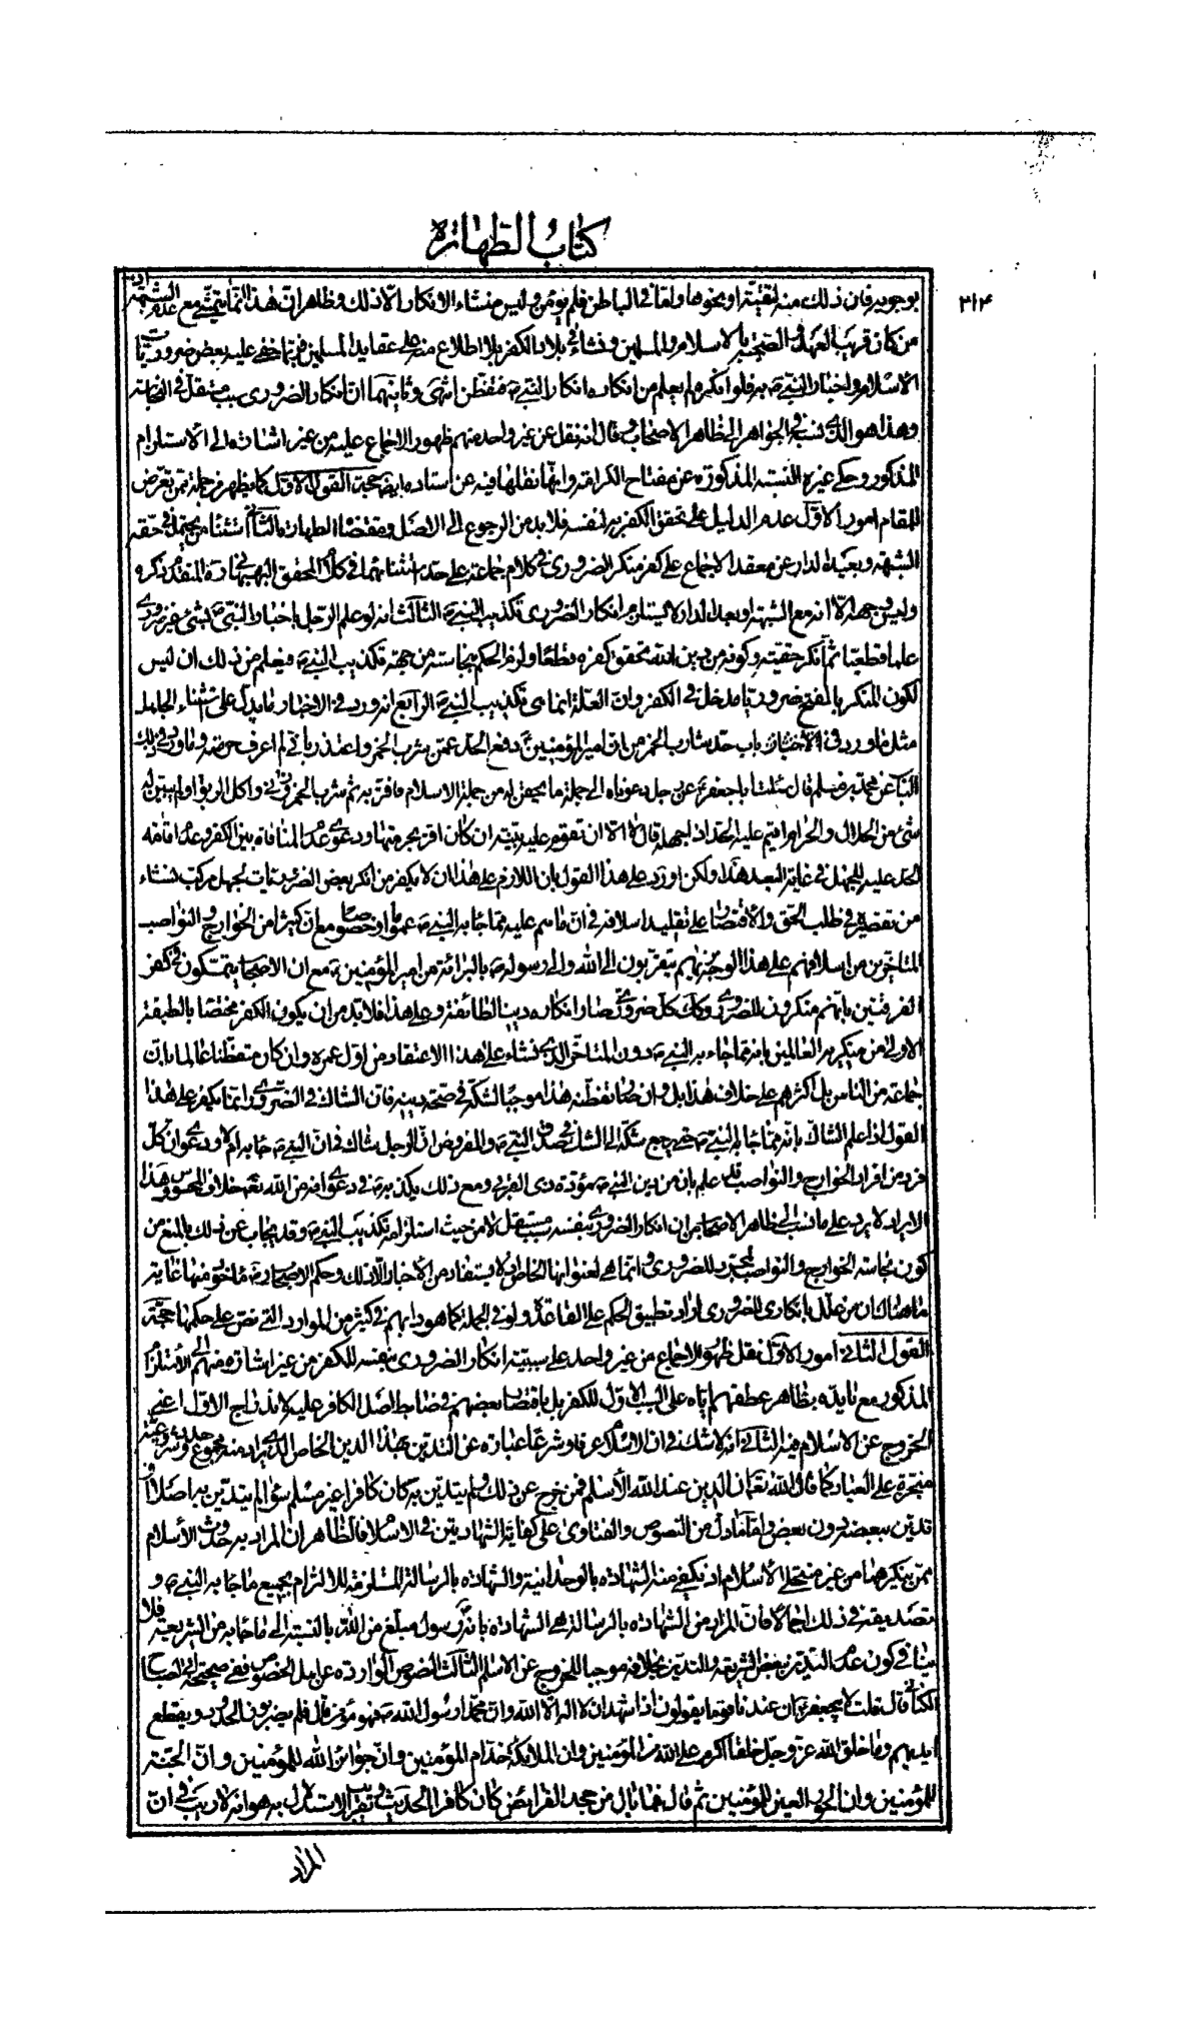 كتاب الطهارة
٣١٤
بوجوبه فان ذلك منه لتقيّة او نحوها واما في الباطن فلم يؤمن وليس منشاء الانكار الّا ذلك وظاهر ان هذا انما يتمشّى مع عدم الشبهة
من كان قريب العهد في الصحبة بالاسلام والمسلمين ونشاء في بلاد الكفر بلا اطلاع منه على عقايد المسلمين فربّما خفي عليه بعض ضروريّات
الاسلام واخبار النبيّ ص به فلو انكره لم يعلم من انكاره انكار النبيّ ص فتفطّن انتهى وثانيهما ان انكار الضروري سبب مستقل في النجاسة
وهذا هو الّذي نسبه في الجواهر الى ظاهر الاصحاب وقال انه نقل عن غير واحد منهم ظهور الاجماع عليه من غير اشارة الى الاستلزام
المذكور وحكى غيره النسبة المذكورة عن مفتاح الكرامة وانّها نقلها فيه عن استاده ايض حجة القول الاوّل كما يظهر من جملة ممن تعرّض
للمقام امور الاوّل عدم الدليل على تحقق الكفر به لنفسه فلا بد من الرجوع الى الاصل ومقتضاه الطهارة الثّاني استثناء من يحتمل في حقّه
الشبهة وبعيد الدار عن معقد الاجماع على كفر منكر الضروري في كلام جماعة على حد استثنائهما في كلام المحقق البهبهاني المتقدّم ذكره
وليس وجهه الّا انه مع الشبهة او بعد الدار لا يستلزم انكار الضروري تكذيب النبيّ ص الثّالث انه لو علم الرجل باخبار النّبيّ ص بشيء غير ضروريّ
علما قطعيّا ثم انكر حقيّته وكونه من دين الله تحقق كفره قطعا ولزم الحكم بنجاسته من جهة تكذيب النبيّ ص فيعلم من ذلك ان ليس
لكون المنكر بالفتح ضروريّا مدخل في الكفر وان العلة انما هي تكذيب النبيّ ص الرّابع انه ورد في الاخبار ما يدل على استثناء الجاهل
مثل ما ورد في الاخبار في باب حد شارب الخمر من ان امير المؤمنين ع دفع الحد عمّن شرب الخمر واعتذر باني لم اعرف حرمته وما ورد في ذلك
الباب عن محمّد بن مسلم قال سئلت ابا جعفر ع عن رجل دعوناه الى جملة ما نحن عليه من جملة الاسلام فاقرّ به ثم شرب الخمر وزنى واكل الربوا ولم يتبيّن له
شيء من الحلال والحرام اقيم عليه الحدّ اذا جهله قال لا الّا ان تقوم عليه بيّنة ان كان اقر بتحريمها ودعوى عدم المنافاة بين الكفر وعدم اقامة
الحد عليه للجهل في غاية البعد هذا ولكن اورد على هذا القول بان اللازم على هذا ان لا يكفر من انكر بعض الضروريّات لجهل مركب نشاء
من تقصيره في طلب الحق والاقتصار على تقليد اسلافه في ان ما هم عليه مما جاء به النبيّ ص عموما او خصوصا مع ان كثيرا من الخوارج والنواصب
المتاخرين من اسلافهم على هذا الوجه فانهم يتقربون الى الله والى رسوله ص بالبرائة من امير المؤمنين ع مع ان الاصحاب يتمسّكون في كفر
الفرقتين بانّهم منكرون للضروري وكك كل ضروري صار انكاره دينا لطائفة وعلى هذا فلا بد من ان يكون الكفر مختصّا بالطبقة
الاولى من منكريه العالمين بانه مما جاء به النبيّ ص دون المتاخر الّذي نشاء على هذا الاعتقاد من اوّل عمره وان كان متفطّنا عالما بان
جماعة من الناس بل اكثرهم على خلاف هذا بل وان صار تفطّنه هذا موجبا لشكّه في صحّة دينه فان الشاك في الضروري انما يكفر على هذا
القول اذا علم الشاك بانه مما جاء به النبيّ ص حتى يرجع شكّه الى الشك في صدق النبيّ ص والمفروض ان الرجل شاك في ان النبيّ ص جاء به ام لا ودعوى ان كل
فرد من افراد الخوارج والنواصب قد علم بان من دين النبيّ ص مودّة ذي القربى ومع ذلك يكذبه في دعوى انه من الله تعه خلاف المحسوس وهذا
الايراد لا يرد على ما نسب الى ظاهر الاصحاب من ان انكار الضروري بنفسه سبب مستقل لا من حيث استلزامه تكذيب النبيّ ص وقد يجاب عن ذلك بالمنع من
كون نجاسة الخوارج والنواصب لمجرّد انكار الضروري وانما هي لعنوانها الخاص اذ لا يستفاد من الاخبار الّا ذلك وحكم الاصحاب ايض ماخوذ منها غاية
ما هناك ان من علّل بانكاري الضروري اراد تطبيق الحكم على القاعدة ولو في الجملة كما هو دابهم في كثير من الموارد التي نص على حكمها حجّة
القول الثّاني امور الاوّل نقل ظهور الاجماع من غير واحد على سببيّة انكار الضروري بنفسه للكفر من غير اشارة منهم الى الاستلزام
المذكور مع تايّده بظاهر عطفهم ايّاه على السبب الاوّل للكفر بل باقتصار بعضهم في ضابط اصل الكافر عليه لاندراج الاوّل اعني
الخروج عن الاسلام فيه الثّاني انه لا شك في ان الاسلام عرفا وشرعا عبارة عن التديّن بهذا الدين الخاص الّذي يراد منه مجموع حدود شرعيّة
منجزة على العباد كما قال الله تعه ان الدين عند الله الاسلام فمن خرج عن ذلك ولم يتديّن به كان كافرا غير مسلم سواء لم يتديّن به اصلا او
تديّن ببعضه دون بعض واما ما دل من النصوص والفتاوى على كفاية الشهادتين في الاسلام فالظاهر ان المراد به حدوث الاسلام
ممن ينكرهما من غير منتحلي الاسلام اذ يكفي منه الشهادة بالوحدانية والشهادة بالرسالة المستلزمة للالتزام بجميع ما جاء به النبيّ ص و
تصديقه في ذلك اجمالا فان المراد من الشهادة بالرسالة هي الشهادة بانّه رسول مبلغ من الله بالنسبة الى ما جاء به من الشريعة فلا
ينافي كون عدم التديّن ببعض الشريعة والتديّن بخلافه موجبا للخروج عن الاسلام الثّالث النصوص الواردة عن اهل الخصوص ففي صحيحة ابي الصباح
الكناني قال قلت لابي جعفر ع ان عندنا قوما يقولون اذا شهد ان لا اله الا الله وان محمّدا رسول الله ص فهو مؤمن قال فلم يضربون الحدود ويقطع
ايديهم وما خلق الله عز وجل خلقا اكرم على الله من المؤمنين وان الملائكة خدّام المؤمنين وان جوار الله للمؤمنين وان الجنّة
للمؤمنين وان الحور العين للمؤمنين ثم قال فما بال من جحد الفرائض كان كافرا الحديث وتقريب الاستدلال به هو انه لا ريب في ان
المراد